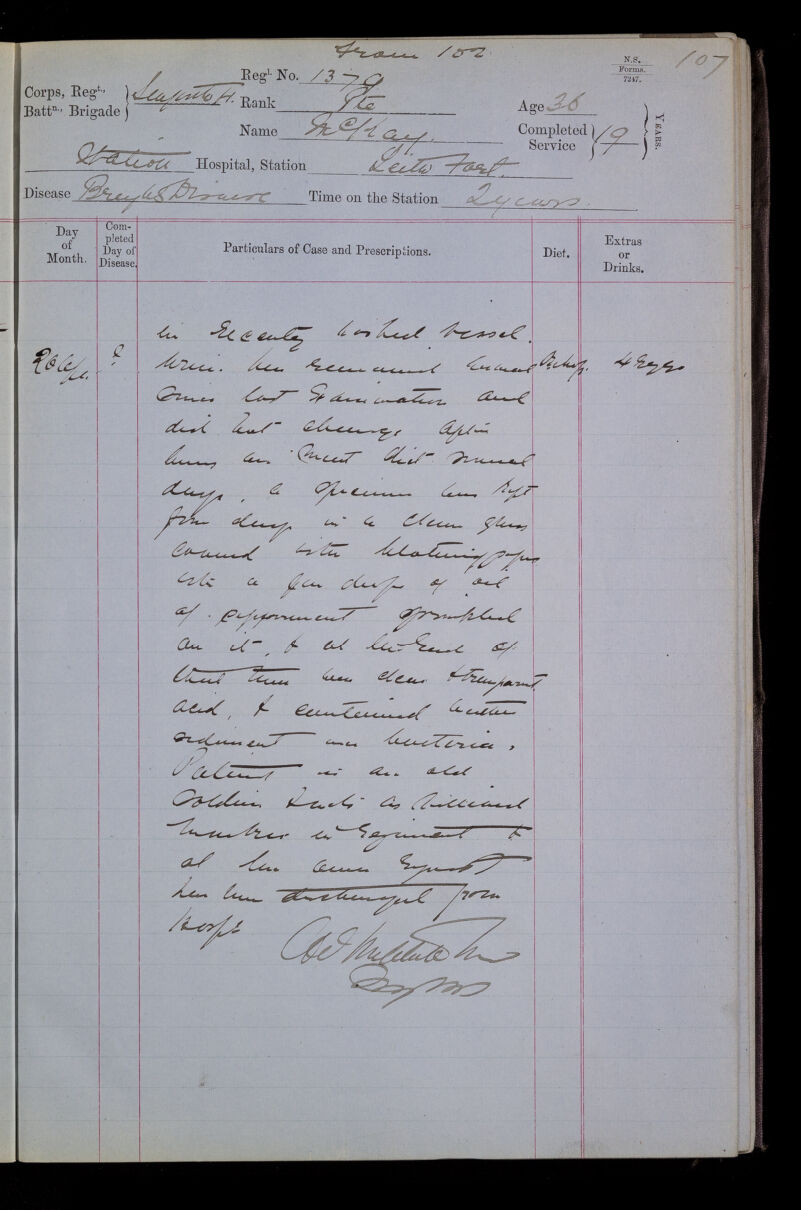 from 102
107
N.S.
Forms.
7247.
Regl. No. 1379
Corps, Regt.,
Battn., Brigade
Seaforth H.
Rank Pte
Age 36
Name McKay.
Completed
Service 19
YEARS.
Station Hospital, Station Leith Fort.
Disease Brights Disease Time on the Station 2 years.
Day
of
Month.
Completed
Day of
Disease.
Particulars of Case and Prescriptions.
Diet.
Extras
or
Drinks.
in recently washed vessel.
Urine has remained normal 4 Eggs
since last examination and
did not change after
being on meat diet several
days, a specimen was kept
four days in a clean glass
covered with blotting paper
with a few drops of oil
of peppermint sprinkled
on it, & at the end of
that time was clear & transparent
acid, & contained neither
sediment nor bacteria.
Patient is an old
soldier & acts as billiard
marker in Regiment &
at his own request
has been discharged from
Hospl